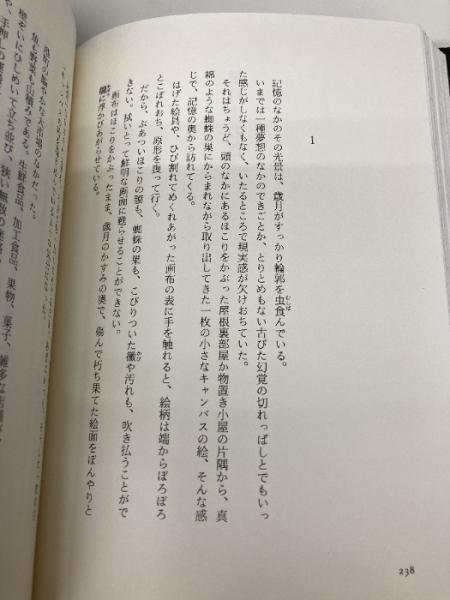 1
記憶のなかのその光景は、歳月がすっかり輪郭を虫食んでいる。
むしば
いまでは一種夢想のなかのできごとか、とりとめもない古びた幻覚の切れっぱしとでもいっ
た感じがしなくもなく、いたるところで現実感が欠けおちていた。
それはちょうど、頭のなかにあるほこりをかぶった屋根裏部屋か物置き小屋の片隅から、真
綿のような蜘蛛の巣にからまれながら取り出してきた一枚の小さなキャンバスの絵、そんな感
じで、記憶の奥から訪れてくる。
はげた絵具や、ひび割れてめくれあがった画布の表に手を触れると、絵柄は端からぼろぼろ
とこぼれおち、原形を喪って行く。
だから、ぶあついほこりの層も、蜘蛛の巣も、こびりついた黴や汚れも、吹き払うことがで
かび
きない。拭いとって鮮明な画面に甦らせることができない。
画布はほこりをかぶったまま、歳月のかすみの奥で、傷んで朽ち果てた絵面をぼんやりと
朧に浮かびあがらせている。
おぼろ
魚も野菜も山積みである。生鮮食品、加工食品、果物、菓子、雑多な
238